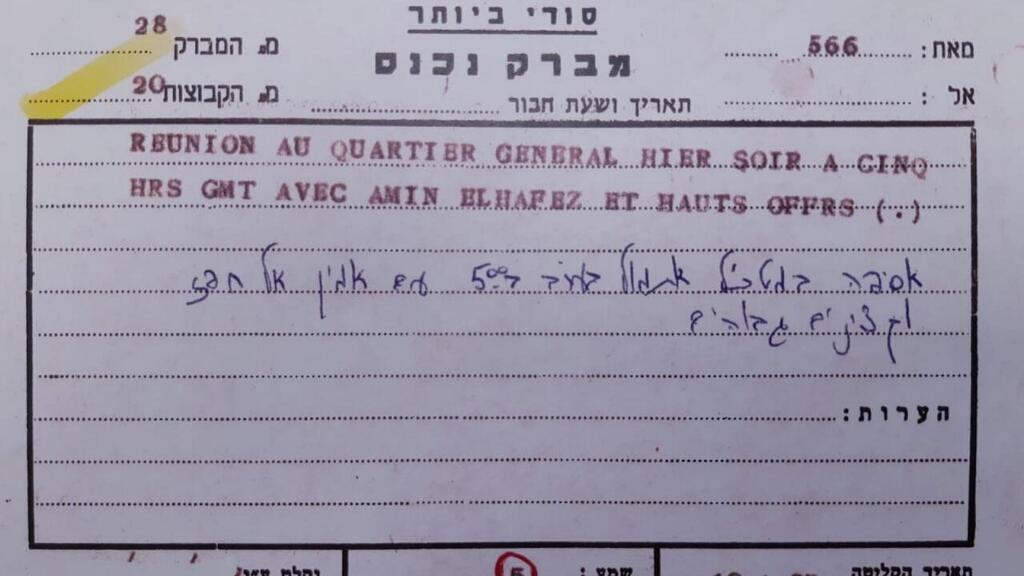 סודי ביותר
מברק נכנס
מאת: 566
מס. המברק 28
אל:
תאריך ושעת חבור
מס. הקבוצות 20
REUNION AU QUARTIER GENERAL HIER SOIR A CINQ
HRS GMT AVEC AMIN ELHAFEZ ET HAUTS OFFRS (.)
אסיפה במטכ"ל אתמול בערב ב 5⁰⁰ עם אמין אל חפז
וקצינים גבוהים
הערות:
תאריך הקליטה
שמע: 5